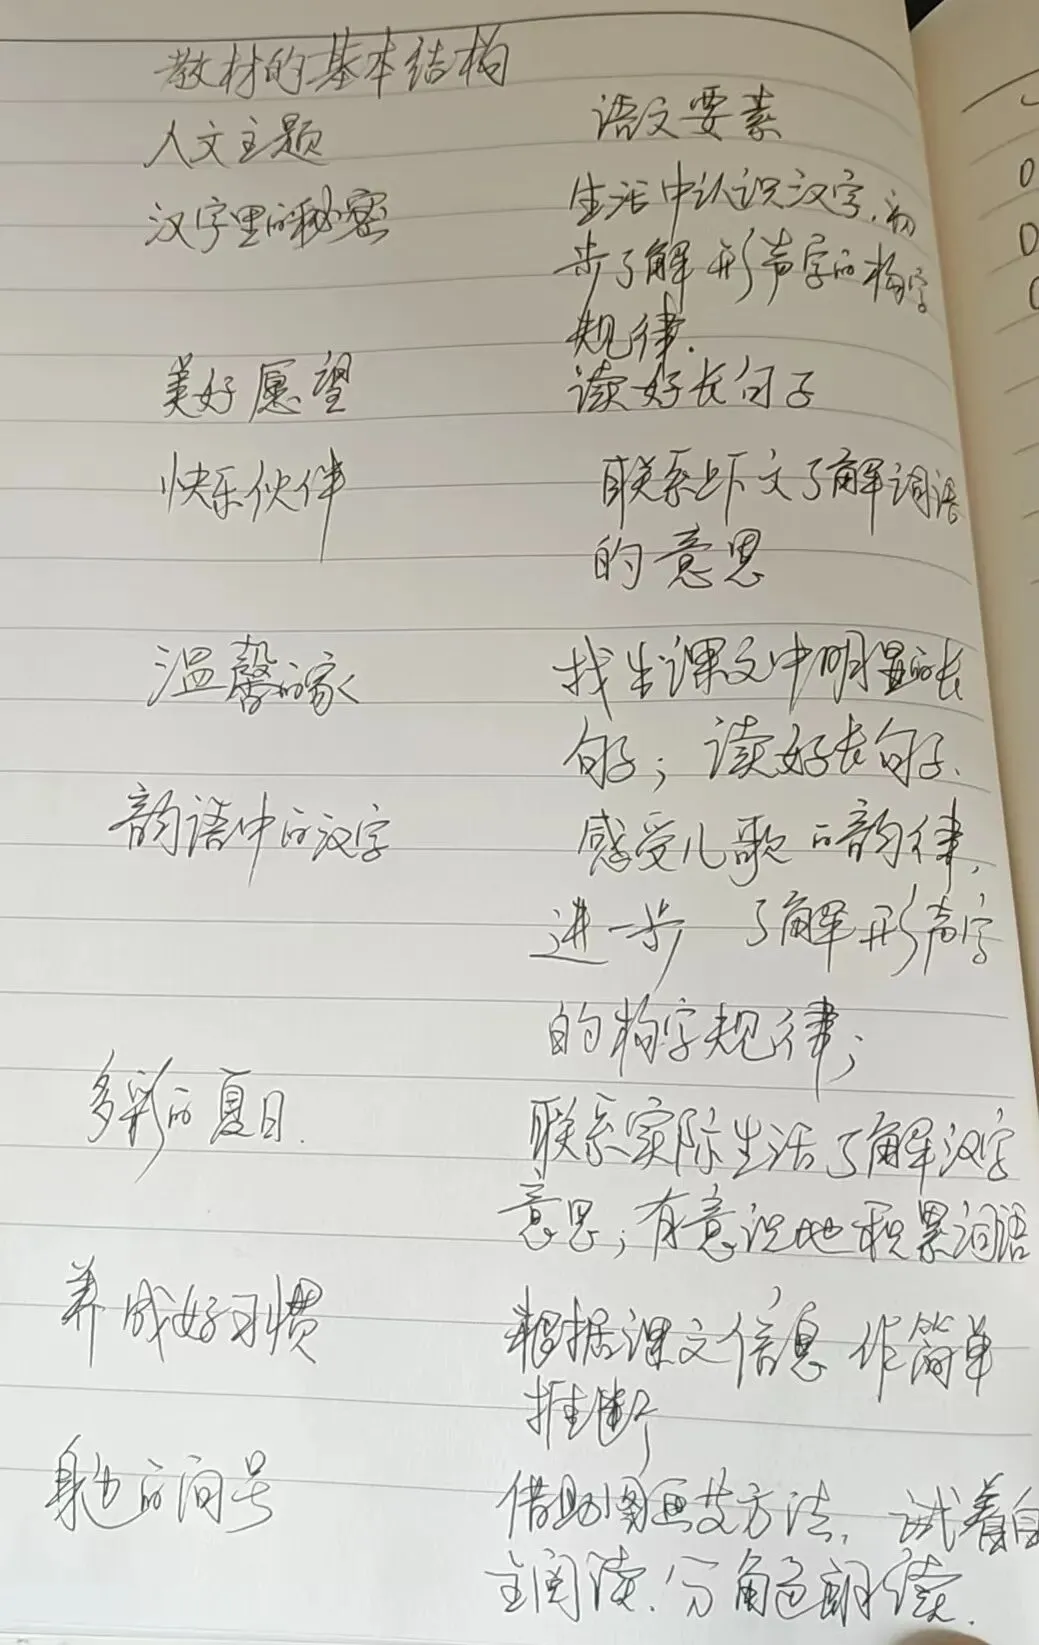 教材的基本结构
人文主题 语文要素
汉字里的秘密 生活中认识汉字,初
步了解形声字的构字
规律.
美好愿望 读好长句子
快乐伙伴 联系上下文了解词语
的意思
温馨的家 找出课文中明显的长
句子；读好长句子.
韵语中的汉字 感受儿歌的韵律,
进一步 了解形声字
的构字规律；
多彩的夏日. 联系实际生活了解汉字
意思；有意识地积累词语
养成好习惯 根据课文信息作简单
推断
身边的问号 借助图画 方法, 试着自
主阅读.分角色朗读.